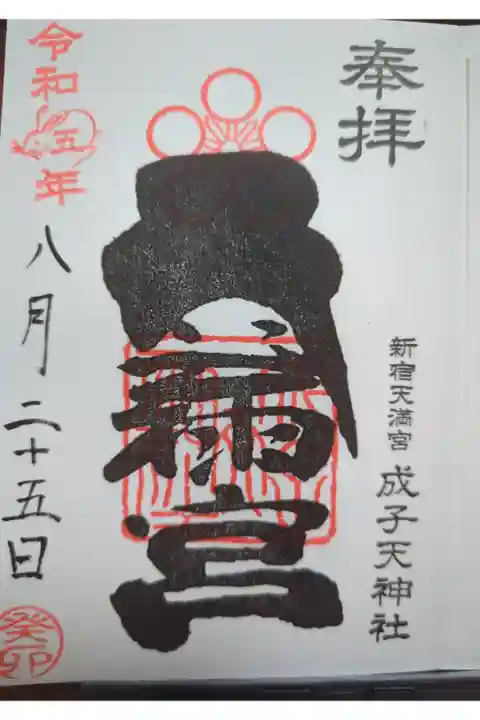 奉拝
新宿天満宮 成子天神社
令和五年八月二十五日
癸卯